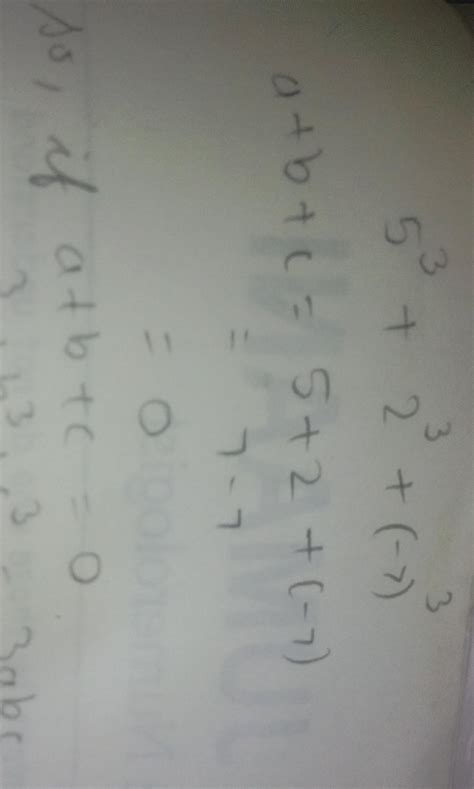 5³ + 2³ + (-7)³
a + b + c = 5 + 2 + (-7)
= 7 - 7
= 0
So, if a + b + c = 0
3abc